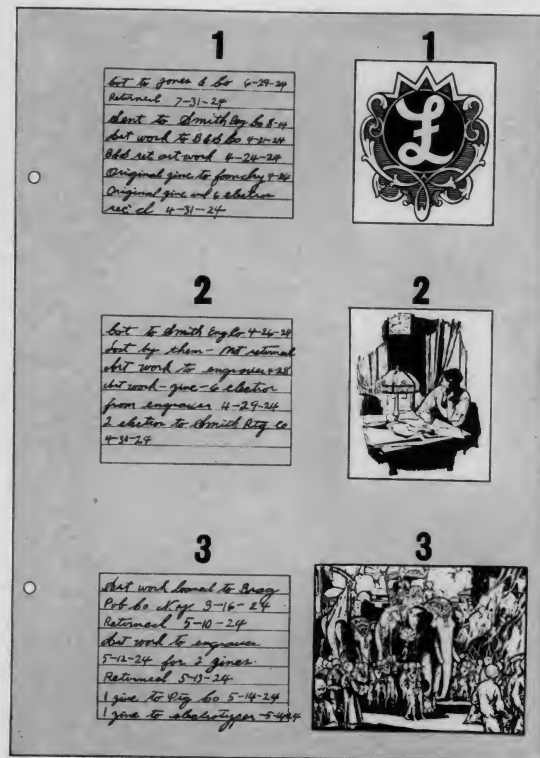 1 1
Cut to Jones & Co 6-29-24
Returned 7-31-24
Sent to Smith Ptg Co 8-14
Art work to B&B Co 4-21-24
B&B ret art work 4-24-24
Original zinc to foundry
Original zinc and 6 electros
rec'd 4-31-24
£
2 2
Cut to Smith Eng Co 4-26-24
Lost by them - not returned
Art work to engraver 4-28
Art work - zinc - 6 electros
from engraver 4-29-24
2 electros to Smith Ptg Co
4-30-24
3 3
Art work loaned to Brag
Pub Co N.Y 3-16-24
Returned 5-10-24
Art work to engraver
5-12-24 for 2 zincs.
Returned 5-13-24
1 zinc to Ptg Co 5-14-24
1 zinc to electrotyper